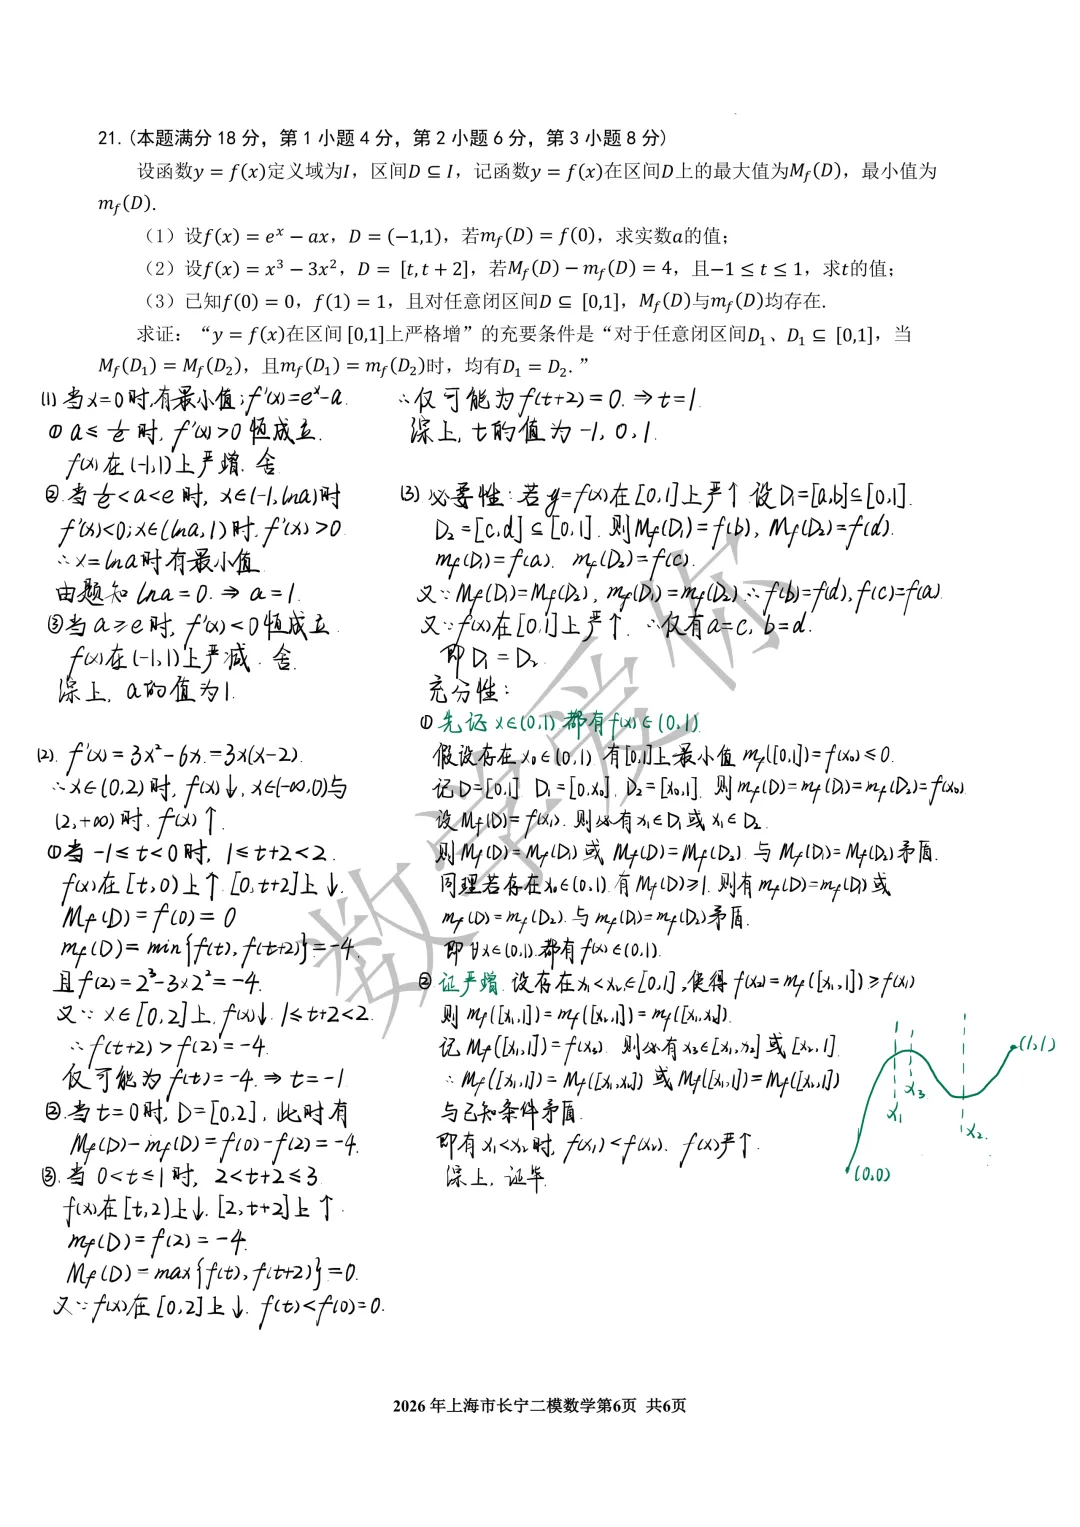 21.(本题满分 18 分，第 1 小题 4 分，第 2 小题 6 分，第 3 小题 8 分)
设函数y = f(x)定义域为I，区间D ⊆ I，记函数y = f(x)在区间D上的最大值为M_f(D)，最小值为
m_f(D).
（1）设f(x) = e^x − ax，D = (−1,1)，若m_f(D) = f(0)，求实数a的值；
（2）设f(x) = x³ − 3x²，D = [t, t + 2]，若M_f(D) − m_f(D) = 4，且−1 ≤ t ≤ 1，求t的值；
（3）已知f(0) = 0，f(1) = 1，且对任意闭区间D ⊆ [0,1]，M_f(D)与m_f(D)均存在.
求证：“y = f(x)在区间 [0,1]上严格增”的充要条件是“对于任意闭区间D₁、D₁ ⊆ [0,1]，当
M_f(D₁) = M_f(D₂)，且m_f(D₁) = m_f(D₂)时，均有D₁ = D₂.”
(1) 当x=0时,有最小值; f'(x)=e^x-a.
① a≤1/e 时, f'(x)>0 恒成立.
f(x)在(-1,1)上严增. 舍
②.当1/e<a<e 时, x∈(-1,lna)时
f'(x)<0; x∈(lna,1)时. f'(x)>0.
∴x=lna时有最小值
由题知 lna=0. ⇒ a=1.
③当 a≥e时, f'(x)<0恒成立.
f(x)在(-1,1)上严减. 舍.
综上, a的值为1.
(2). f'(x)=3x²-6x.=3x(x-2).
∴x∈(0,2)时, f(x)↓, x∈(-∞,0)与
(2,+∞)时. f(x)↑.
①当 -1≤t<0时, 1≤t+2<2.
f(x)在[t,0)上↑. [0,t+2]上↓.
M_f(D)=f(0)=0
m_f(D)=min{f(t), f(t+2)}=-4.
且f(2)=2³-3×2²=-4.
又∵x∈[0,2]上, f(x)↓. 1≤t+2<2.
∴f(t+2)>f(2)=-4.
仅可能为f(t)=-4. ⇒ t=-1
②.当t=0时, D=[0,2], 此时有
M_f(D)-m_f(D)=f(0)-f(2)=-4.
③.当 0<t≤1时, 2<t+2≤3.
f(x)在[t,2)上↓. [2,t+2]上↑.
m_f(D)=f(2)=-4.
M_f(D)=max{f(t), f(t+2)}=0.
又∵f(x)在[0,2]上↓. f(t)<f(0)=0.
∴仅可能为f(t+2)=0. ⇒ t=1.
综上, t的值为-1, 0, 1.
(3) 必要性: 若y=f(x)在[0,1]上严↑ 设D₁=[a,b]⊆[0,1].
D₂=[c,d]⊆[0,1]. 则M_f(D₁)=f(b), M_f(D₂)=f(d).
m_f(D₁)=f(a). m_f(D₂)=f(c).
又∵M_f(D₁)=M_f(D₂), m_f(D₁)=m_f(D₂) ∴f(b)=f(d), f(c)=f(a).
又∵f(x)在[0,1]上严↑. ∴仅有a=c, b=d.
即D₁=D₂.
充分性:
① 先证 x∈(0,1) 都有f(x)∈(0,1).
假设存在x₀∈(0,1). 有[0,1]上最小值 m_f([0,1])=f(x₀)≤0.
记D=[0,1] D₁=[0,x₀]. D₂=[x₀,1]. 则m_f(D)=m_f(D₁)=m_f(D₂)=f(x₀)
设M_f(D)=f(x₁). 则必有x₁∈D₁或x₁∈D₂.
则M_f(D)=M_f(D₁)或 M_f(D)=M_f(D₂). 与M_f(D₁)=M_f(D₂)矛盾.
同理若存在x₀∈(0,1). 有M_f(D)≥1. 则有m_f(D)=m_f(D₁)或
m_f(D)=m_f(D₂). 与m_f(D₁)=m_f(D₂)矛盾.
即∀x∈(0,1).都有f(x)∈(0,1).
② 证严增. 设存在x₁<x₂∈[0,1],使得 f(x₂)=m_f([x₁,1])≥f(x₁)
则 m_f([x₁,1])=m_f([x₂,1])=m_f([x₁,x₂]).
记M_f([x₁,1])=f(x₃). 则必有x₃∈[x₁,x₂]或[x₂,1].
∴M_f([x₁,1])=M_f([x₁,x₂])或M_f([x₁,1])=M_f([x₂,1])
与已知条件矛盾.
即有x₁<x₂时, f(x₁)<f(x₂). f(x)严↑.
综上, 证毕.
(1,1)
x₃
x₁
x₂.
(0,0)
数学爱你
2026 年上海市长宁二模数学第6页 共6页